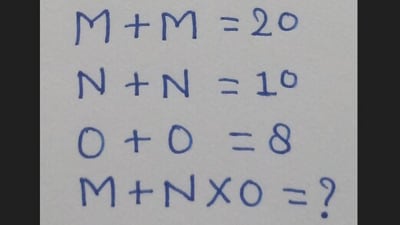 M + M = 20
N + N = 10
O + O = 8
M + N X O = ?